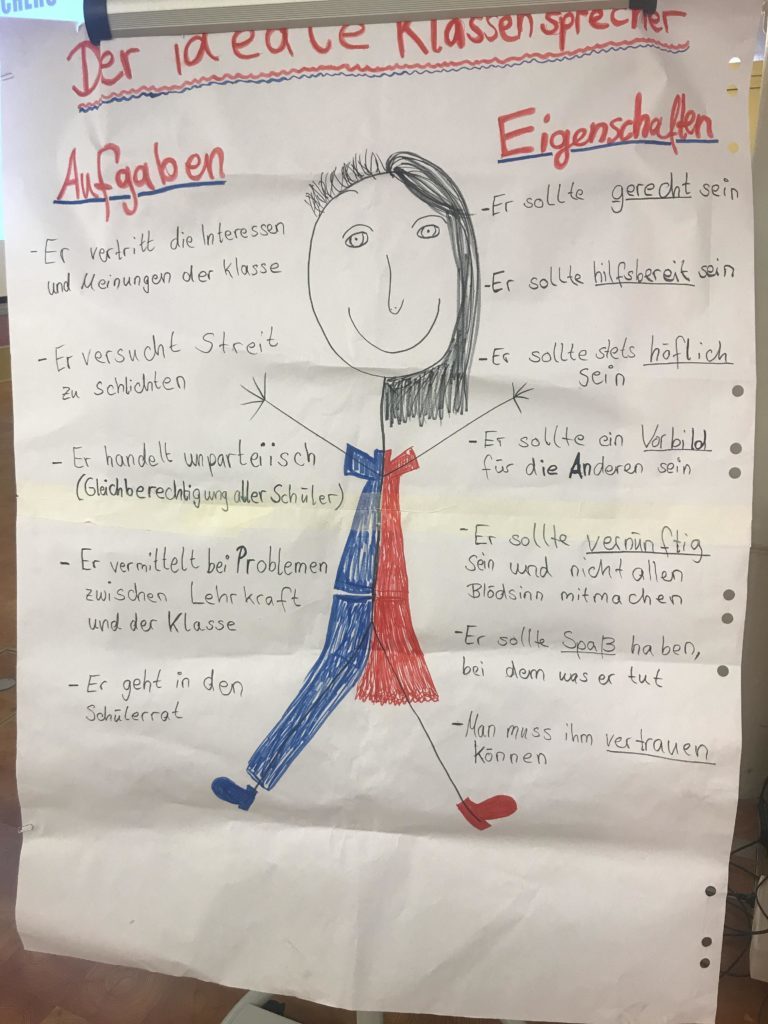 Der ideale Klassensprecher
Aufgaben
- Er vertritt die Interessen
und Meinungen der Klasse
- Er versucht Streit
zu schlichten
- Er handelt unparteiisch
(Gleichberechtigung aller Schüler)
- Er vermittelt bei Problemen
zwischen Lehrkraft
und der Klasse
- Er geht in den
Schülerrat
Eigenschaften
- Er sollte gerecht sein
- Er sollte hilfsbereit sein
- Er sollte stets höflich
sein
- Er sollte ein Vorbild
für die Anderen sein
- Er sollte vernünftig
sein und nicht allen
Blödsinn mitmachen
- Er sollte Spaß haben,
bei dem was er tut
- Man muss ihm vertrauen
können